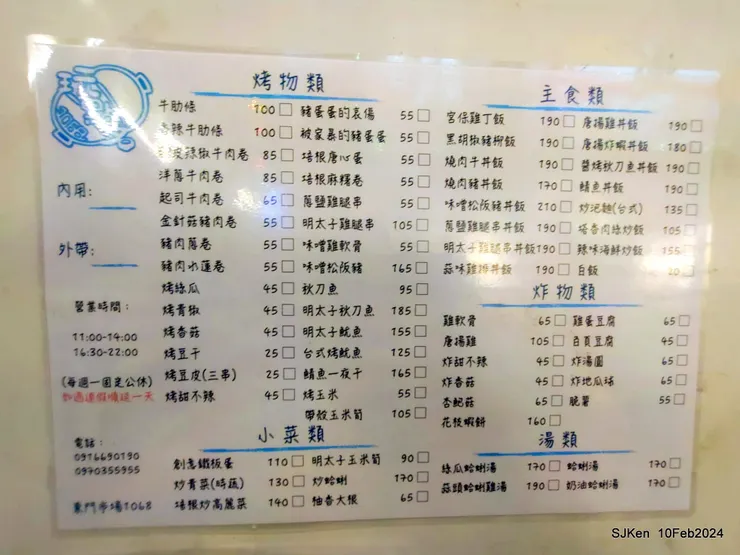 烤物類
牛肋條 100 □
香辣牛肋條 100 □
皮辣椒牛肉卷 85 □
洋蔥牛肉卷 85 □
起司牛肉卷 65 □
金針菇豬肉卷 55 □
豬肉蔥卷 55 □
豬肉水蓮卷 55 □
烤絲瓜 45 □
烤青椒 45 □
烤香菇 45 □
烤豆干 25 □
烤豆皮(三串) 25 □
烤甜不辣 45 □
豬蛋蛋的哀傷 55 □
被家暴的豬蛋蛋 55 □
培根唐心蛋 55 □
培根麻糬卷 55 □
蔥鹽雞腿串 55 □
明太子雞腿串 105 □
味噌雞軟骨 55 □
味噌松阪豬 165 □
秋刀魚 95 □
明太子秋刀魚 185 □
明太子魷魚 155 □
台式烤魷魚 125 □
鯖魚一夜干 165 □
烤玉米 55 □
帶殼玉米筍 105 □
主食類
宮保雞丁飯 190 □
黑胡椒豬柳飯 190 □
燒肉牛丼飯 190 □
燒肉豬丼飯 170 □
味噌松阪豬丼飯 210 □
蔥鹽雞腿串丼飯 190 □
明太子雞腿串丼飯 190 □
蒜味雞排丼飯 190 □
唐揚雞丼飯 190 □
唐揚炸蝦丼飯 180 □
醬烤秋刀魚丼飯 190 □
鯖魚丼飯 190 □
炒泡麵(台式) 135 □
塔香肉絲炒飯 155 □
辣味海鮮炒飯 155 □
白飯 □
炸物類
雞軟骨 65 □
唐揚雞 105 □
炸甜不辣 45 □
炸香菇 45 □
杏鮑菇 65 □
花枝蝦餅 160 □
雞蛋豆腐 65 □
百頁豆腐 45 □
炸湯圓 65 □
炸地瓜球 65 □
脆薯 55 □
小菜類
創意鐵板蛋 110 □
炒青菜(時蔬) 130 □
培根炒高麗菜 140 □
明太子玉米筍 90 □
炒蛤蜊 170 □
柚香大根 65 □
湯類
絲瓜蛤蜊湯 170 □
蒜頭蛤蜊雞湯 190 □
蛤蜊湯 170 □
奶油蛤蜊湯 170 □
內用:
外帶:
營業時間:
11:00-14:00
16:30-22:00
(每週一固定公休)
如遇連假順延一天
電話:
0916690190
0970355955
東門市場1068
SJKen 10Feb2024